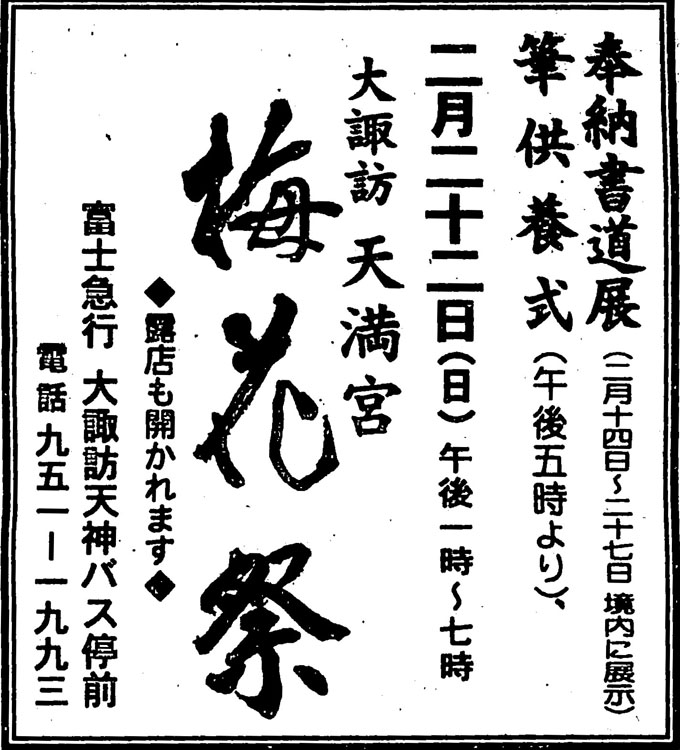 奉納書道展(二月十四日～二十七日 境内に展示)
筆供養式(午後五時より)、
二月二十二日(日)午後一時～七時
大諏訪 天満宮
梅花祭
◆露店も開かれます◆
富士急行 大諏訪天神バス停前
電話 九五一―一九九三